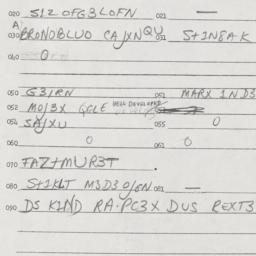 020 S12 OFG3LOFN 021 —
030 BRONOBLUO CAJXNQU 031 S+1N8AK
040 0
050 G3JRN 051 MARX 1ND3
052 MOJ3X QGLE WELL DEVELOPED
054 SAJXU 055 0
060 0 061 0
070 FAZ+MUR3T.
080 S+1KLT M3D30/6N 081 —
090 DS K1ND RA.PC3X DUS REXT3